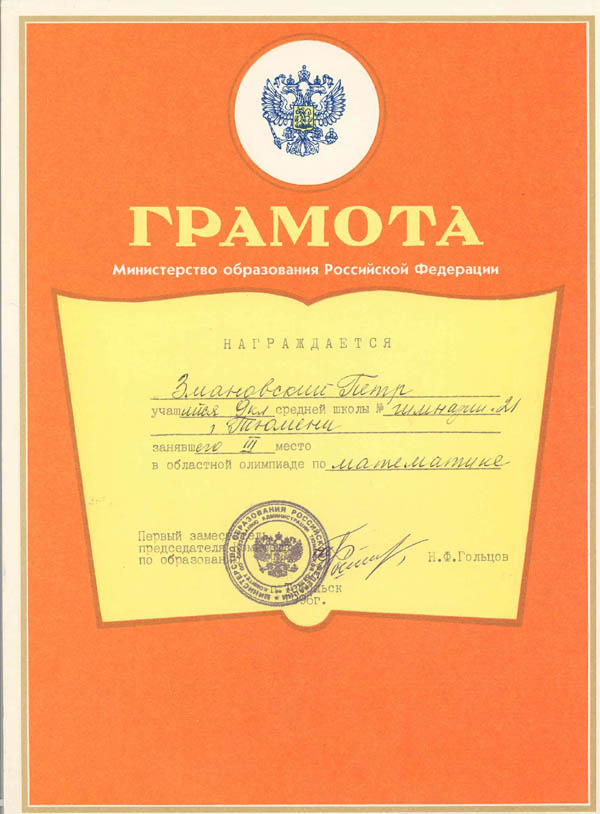 ГРАМОТА
Министерство образования Российской Федерации
НАГРАЖДАЕТСЯ
Змановский Петр
учащийся 9кл средней школы № гимназии-21
г. Тюмени
занявшего III место
в областной олимпиаде по математике
Первый заместитель
председателя
по образован
Н.Ф.Гольцов
МИНИСТЕРСТВО ОБРАЗОВАНИЯ РОССИЙСКОЙ ФЕДЕРАЦИИ
96г.